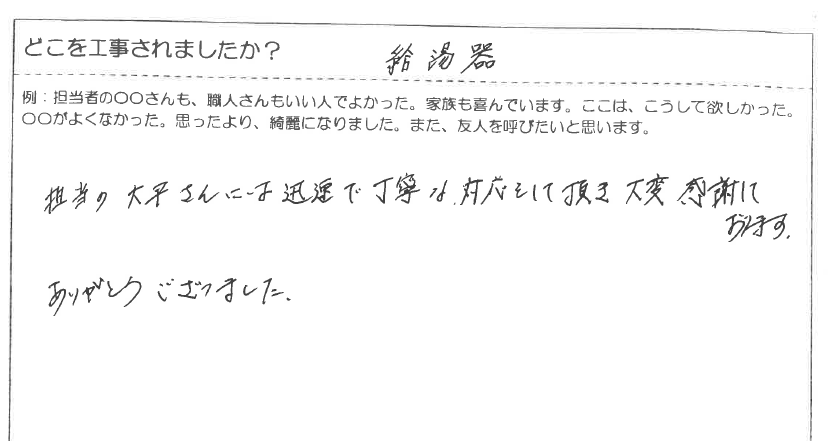 どこを工事されましたか？ 給湯器
例：担当者の〇〇さんも、職人さんもいい人でよかった。家族も喜んでいます。ここは、こうして欲しかった。
〇〇がよくなかった。思ったより、綺麗になりました。また、友人を呼びたいと思います。
担当の大平さんには迅速で丁寧な対応をして頂き大変感謝して
おります。
ありがとうございました。